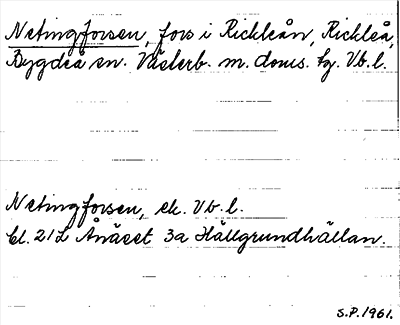 Netingforsen, fors i Rickleån, Rickleå,
Bygdeå sn. Västerb. m. doms. tg. Vb. l.
Netingforsen, ek. Vb. l.
bl. 21L Ånäset 3a Hällgrundhällan.
S.P. 1961.